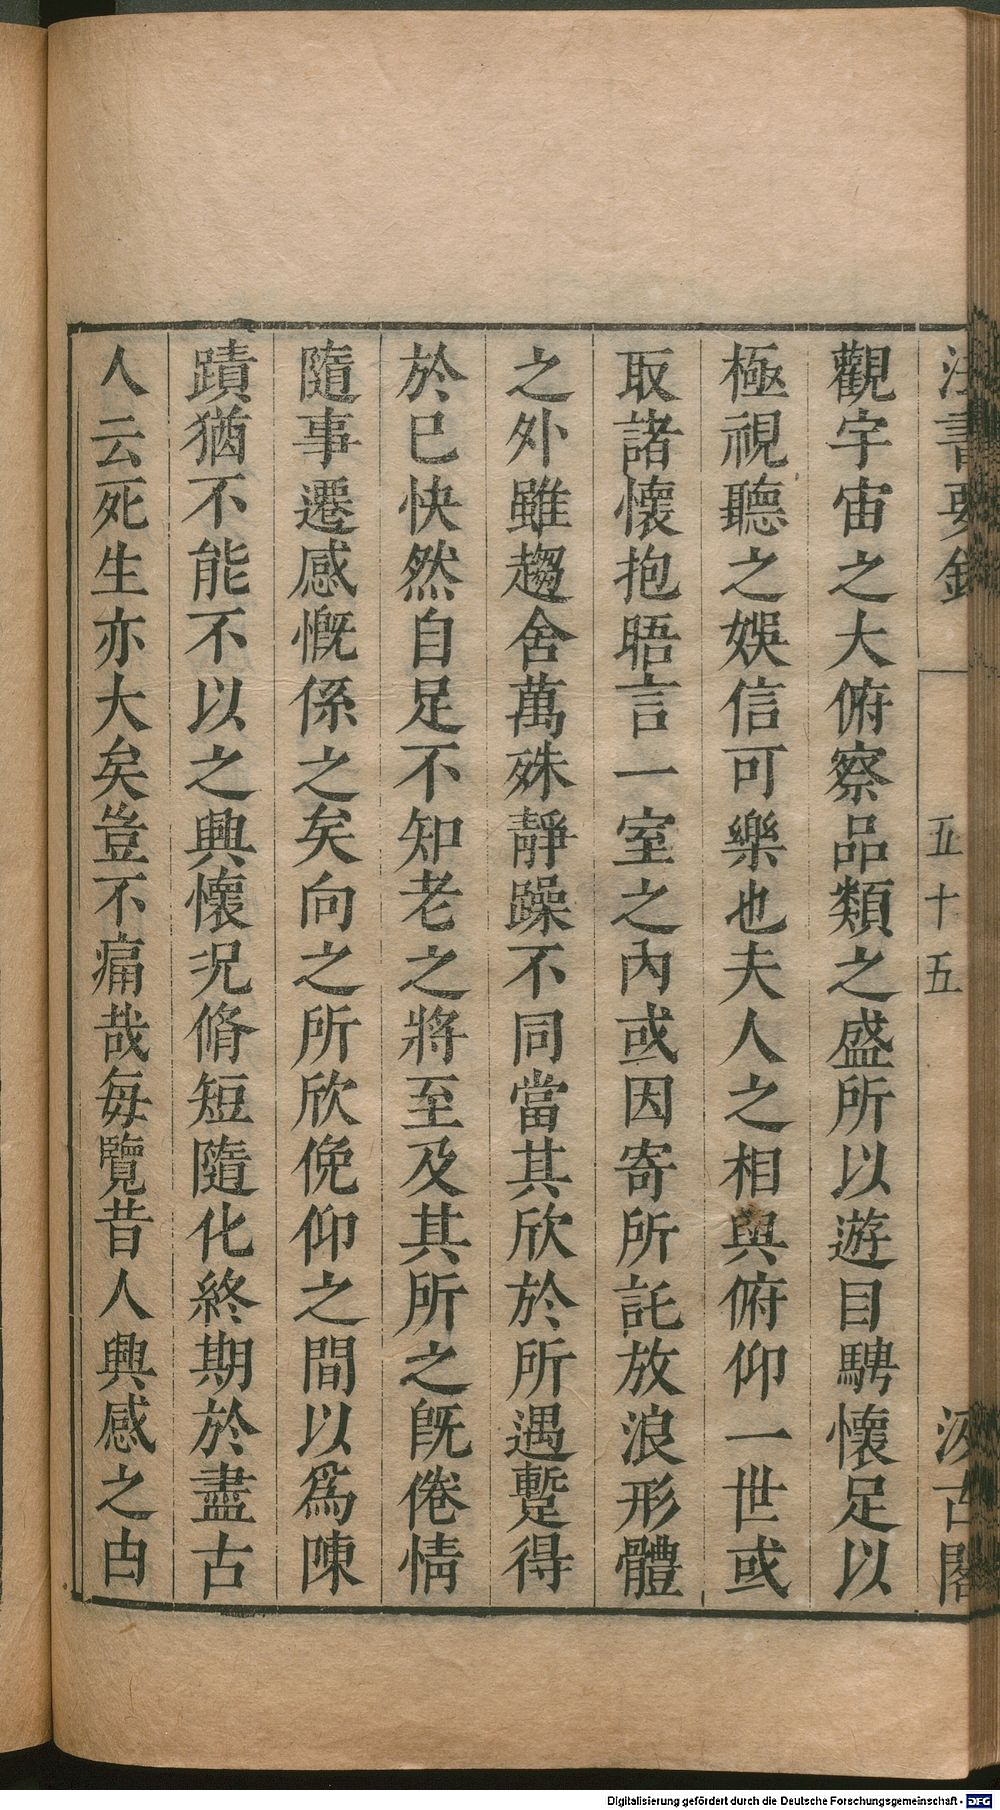 法書要錄
五十五
汲古閣
觀宇宙之大俯察品類之盛所以遊目騁懷足以
極視聽之娛信可樂也夫人之相與俯仰一世或
取諸懷抱晤言一室之內或因寄所託放浪形體
之外雖趨舍萬殊靜躁不同當其欣於所遇蹔得
於已快然自足不知老之將至及其所之旣倦情
隨事遷感慨係之矣向之所欣俛仰之間以爲陳
蹟猶不能不以之興懷况脩短隨化終期於盡古
人云死生亦大矣豈不痛哉每覽昔人興感之由
Digitalisierung gefördert durch die Deutsche Forschungsgemeinschaft - DFG